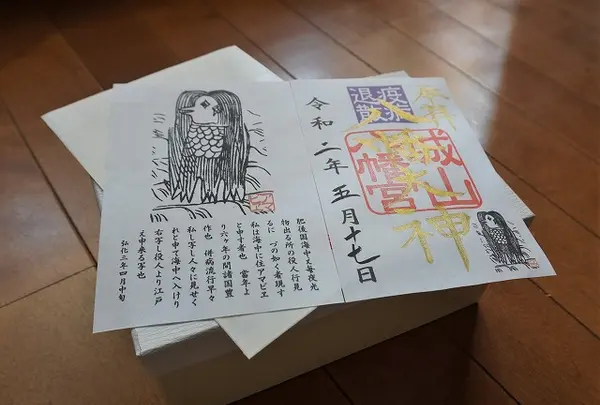 奉拝
疫病
退散
八幡大神
城山
八幡宮
令和二年五月十七日
肥後国海中え毎夜光
物出る所の役人行見
るに づの如く者現す
私は海中に住アマビエ
と申す者也 當年よ
り六ヶ年の間諸国豊
作也 併病流行早々
私し写し人々に見せく
れと申て海中へ入けり
右写し役人より江戸
え申来る写也
弘化三年四月中旬